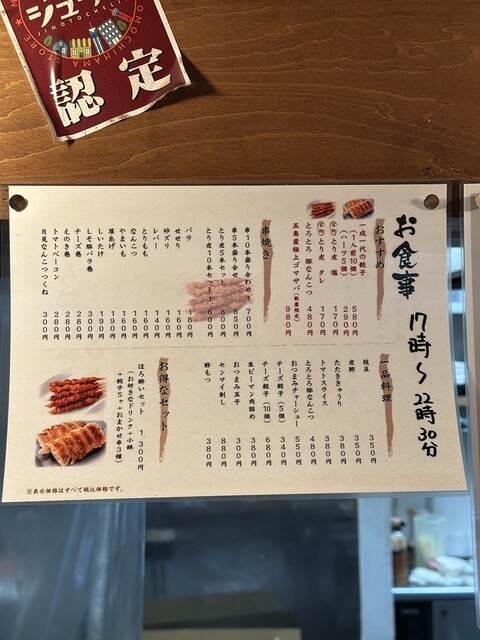 ジモ
JIMOTOCHELIN
MOMOCHIHAMA STORE
認定
お食事 17時〜22時30分
おすすめ
一成一代の餃子
(1人前10個) 580円
(ハーフ5個) 290円
とり皮 塩 170円
とり皮 タレ 170円
とろとろ 豚なんこつ 480円
五島産極上ゴマサバ(数量限定) 980円
串焼き
串10本盛り合わせ 1,700円
串5本盛り合せ 850円
とり皮5本セット 800円
とり皮10本セット 1,600円
バラ 180円
せせり 160円
砂ズリ 160円
レバー 140円
とりもも
なんこつ
やまいも
厚あげ
しいたけ 190円
しそ豚バラ巻 300円
チーズ巻 280円
えのき巻 280円
トマトベーコン 280円
月見なんこつつくね 300円
一品料理
枝豆 350円
皮酢 350円
たたききゅうり 350円
トマトスライス 380円
とろとろ豚なんこつ 480円
おつまみチャーシュー 550円
チーズ餃子(5個) 340円
チーズ餃子(10個) 680円
生ピーマン肉詰め 380円
おつまみ玉子 300円
センマイ刺し 880円
酢もつ 380円
お得なセット
ほろ酔いセット 1,300円
(お好きなドリンク+小鉢
+餃子5ヶ+おまかせ串3種)
※表示価格はすべて税込価格です。